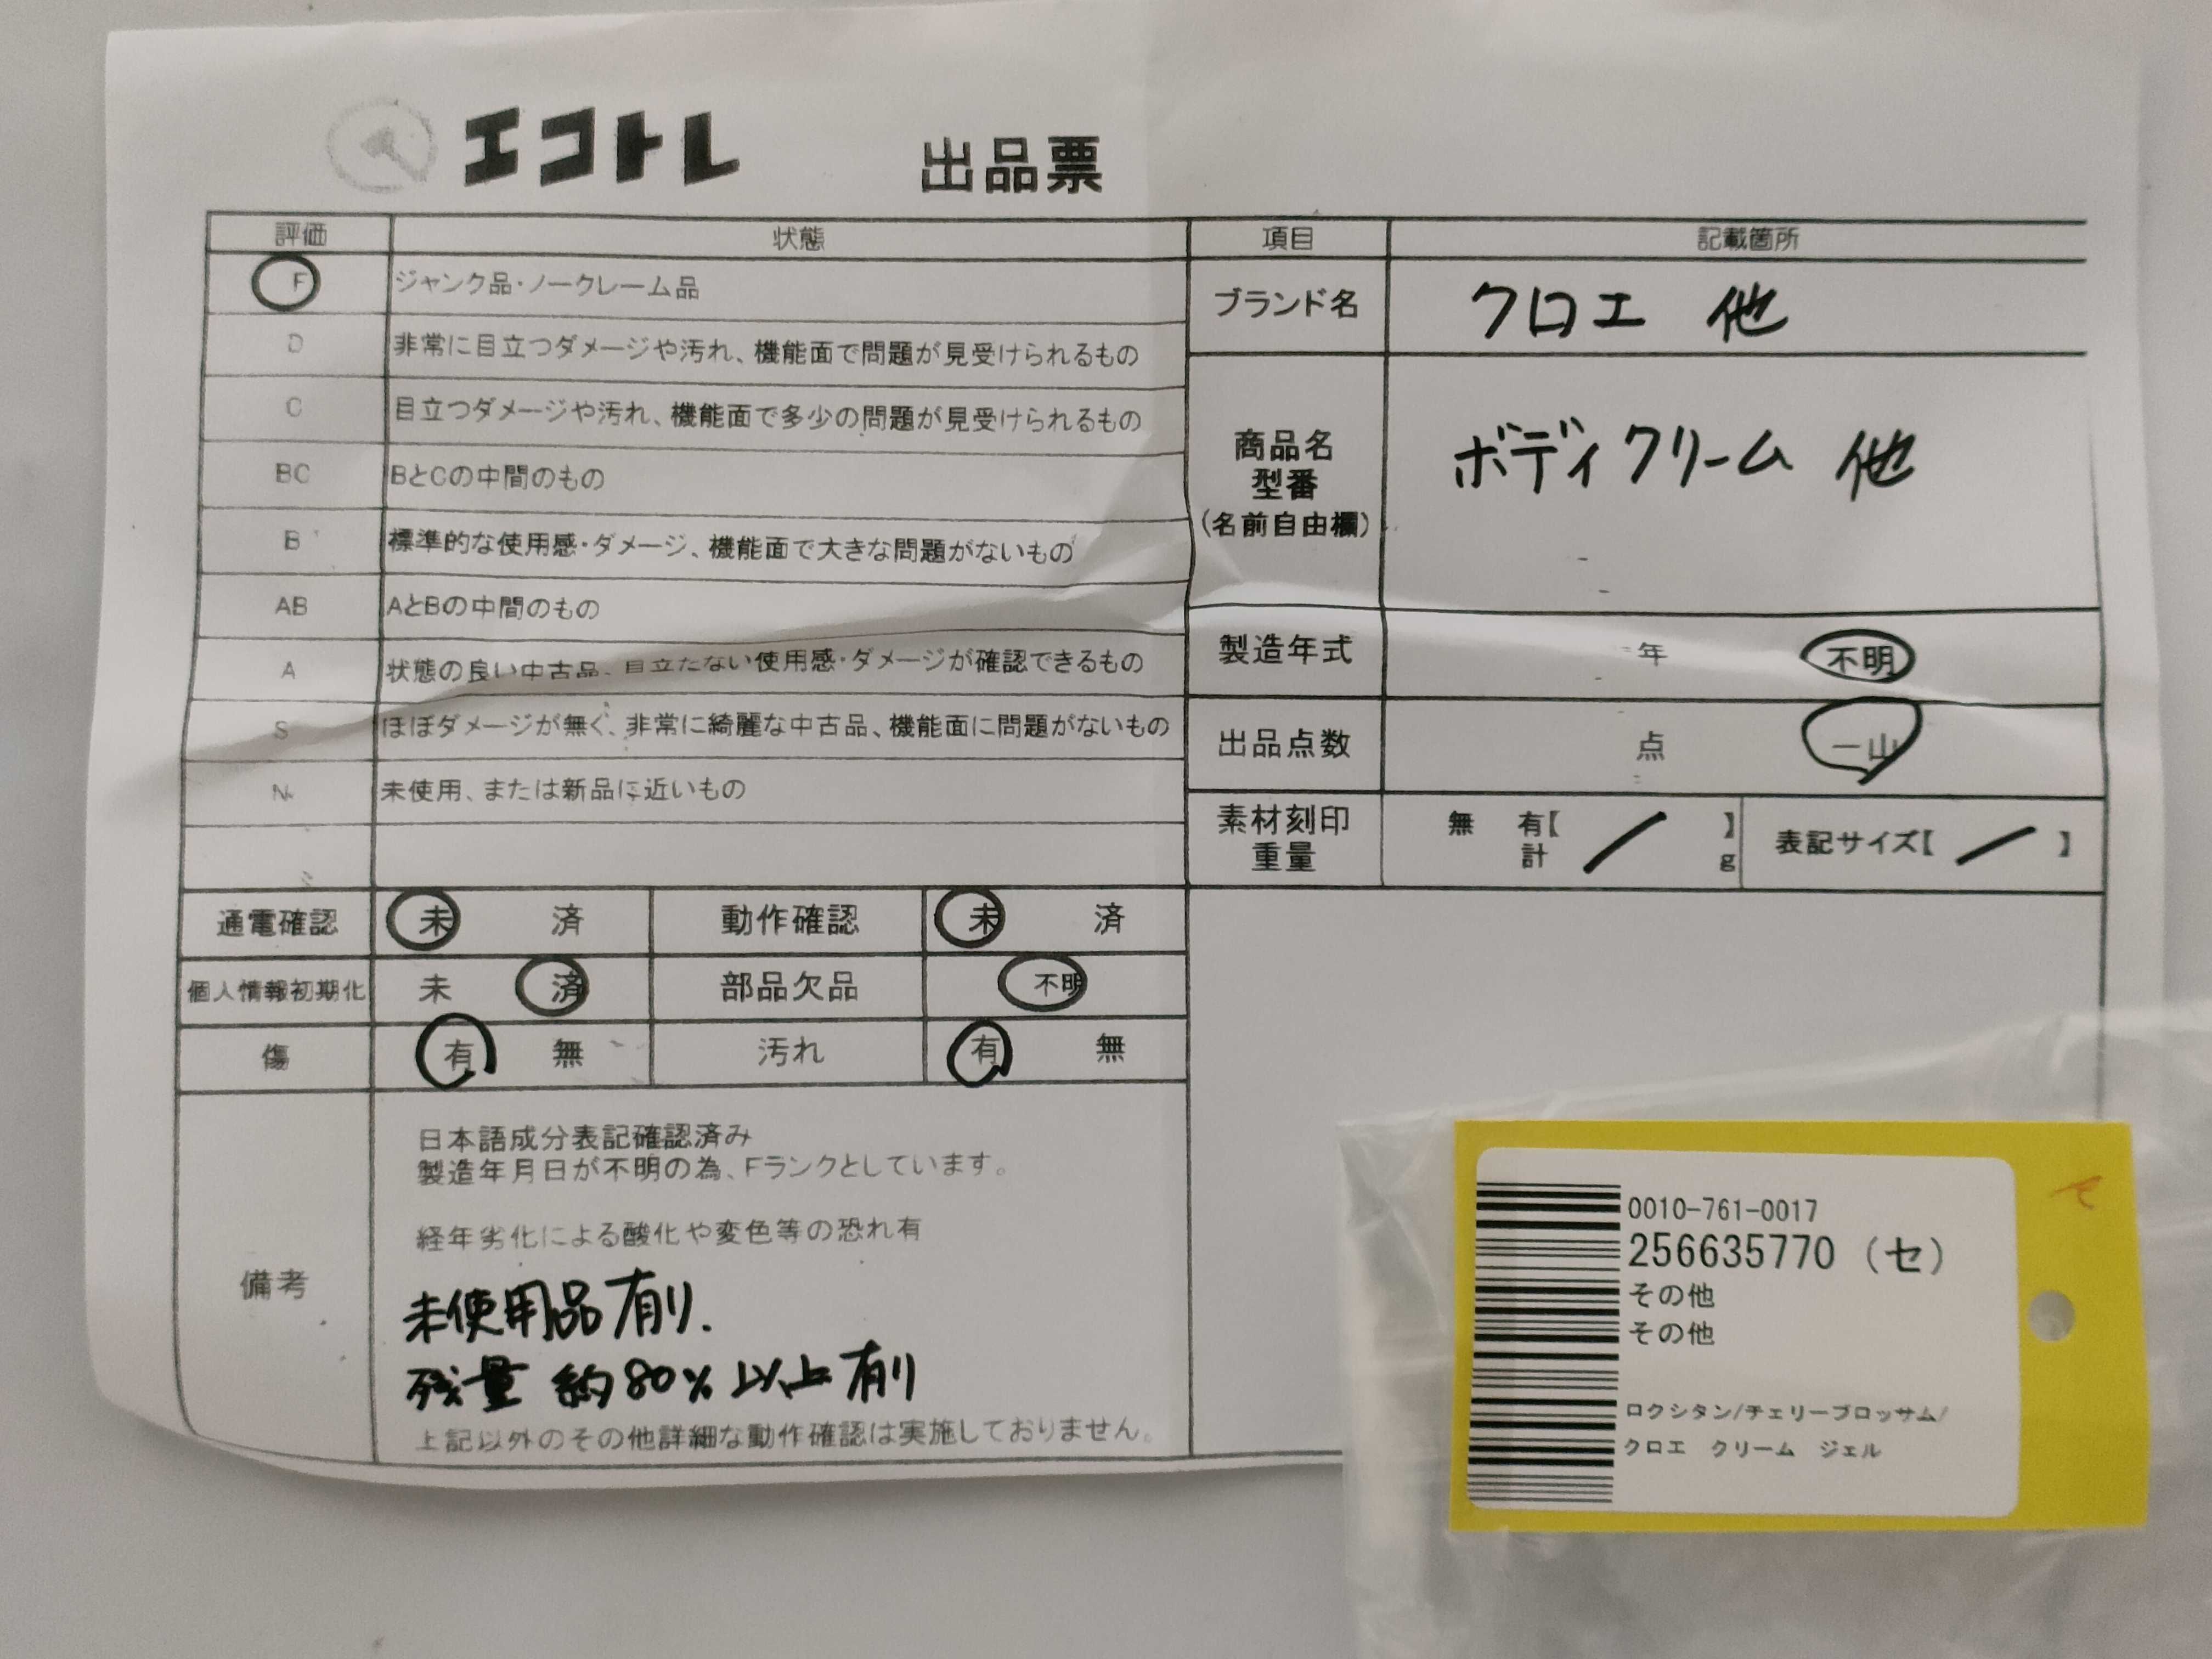 エコトレ 出品票
評価 状態 項目 記載箇所
F ジャンク品・ノークレーム品
D 非常に目立つダメージや汚れ、機能面で問題が見受けられるもの
C 目立つダメージや汚れ、機能面で多少の問題が見受けられるもの
BC BとCの中間のもの
B 標準的な使用感・ダメージ、機能面で大きな問題がないもの
AB AとBの中間のもの
A 状態の良い中古品、目立たない使用感・ダメージが確認できるもの
S ほぼダメージが無く、非常に綺麗な中古品、機能面に問題がないもの
N 未使用、または新品に近いもの
ブランド名 クロエ 他
商品名
型番
(名前自由欄)
ボディクリーム 他
製造年式 年 不明
出品点数 点 一山
素材刻印 無 有【 】 表記サイズ【 】
重量 計 g
通電確認 未 済 動作確認 未 済
個人情報初期化 未 済 部品欠品 不明
傷 有 無 汚れ 有 無
備考
日本語成分表記確認済み
製造年月日が不明の為、Fランクとしています。
経年劣化による酸化や変色等の恐れ有
未使用品有り.
残量 約80% 以上有り
上記以外のその他詳細な動作確認は実施しておりません。
0010-761-0017
256635770 (セ)
その他
その他
ロクシタン/チェリーブロッサム/
クロエ クリーム ジェル